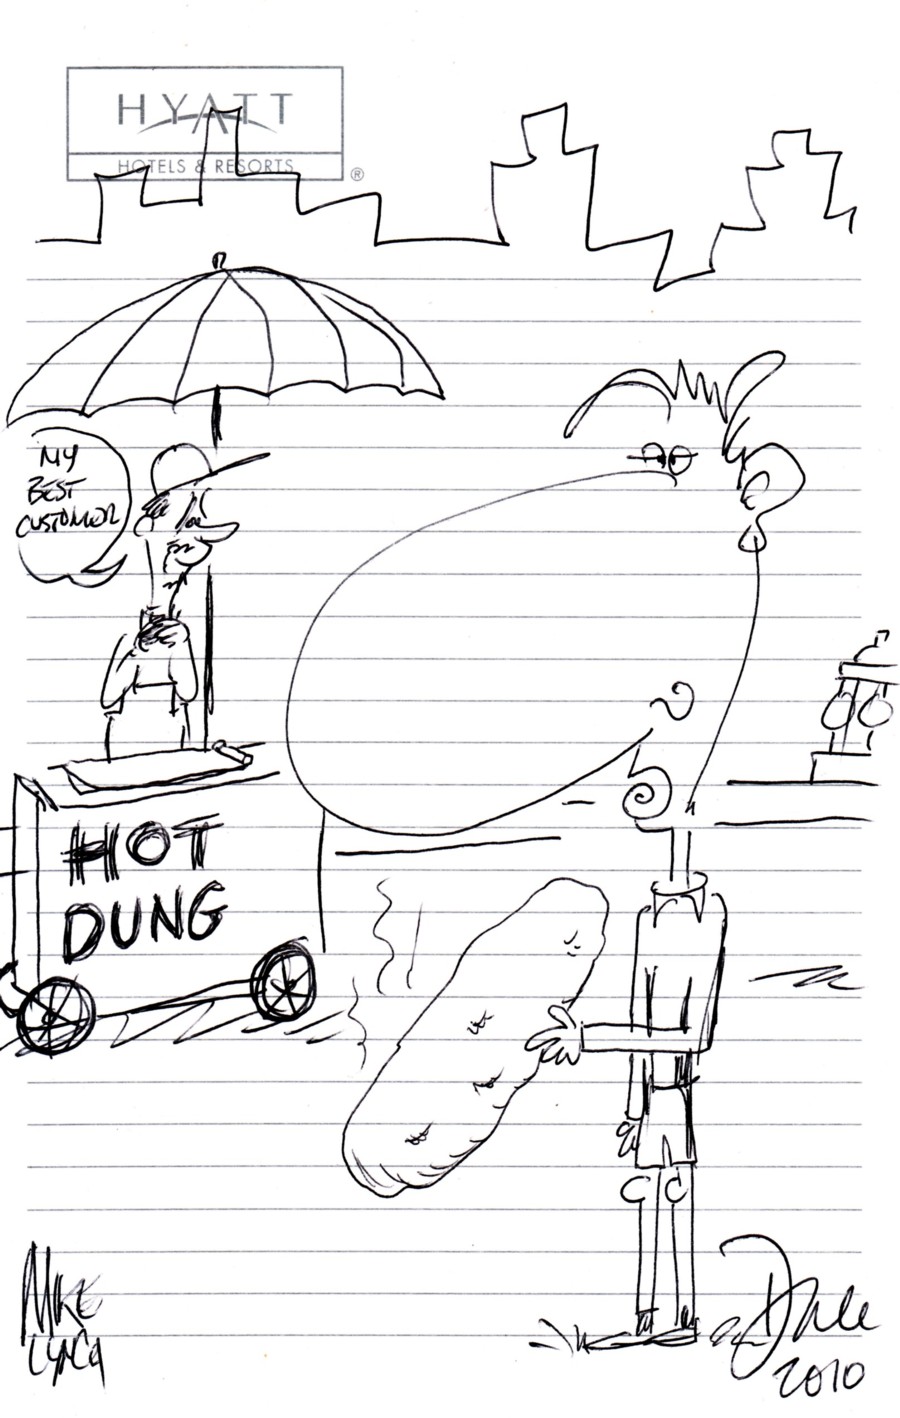 HYATT
HOTELS & RESORTS
®
MY
BEST
CUSTOMER
HOT
DUNG
MIKE
LYNCH
Dale
2010